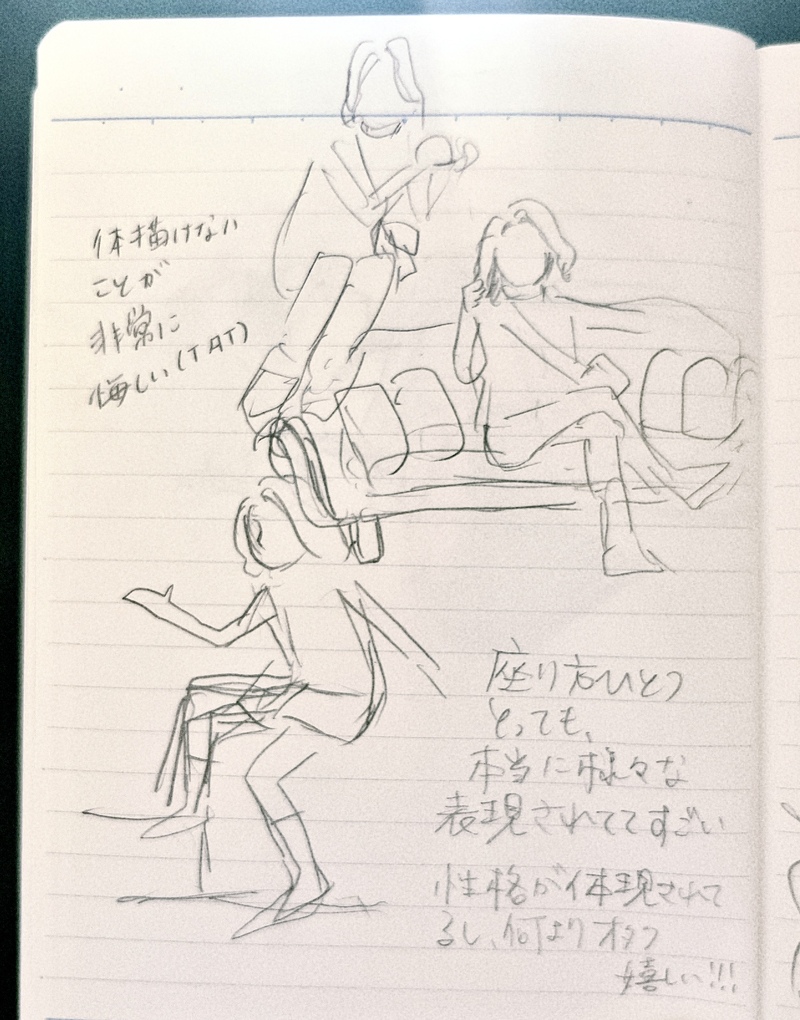 体描けない
ことが
非常に
悔しい(TAT)
座り方ひとつ
とっても、
本当に様々な
表現されててすごい
性格が体現されて
るし、何よりオタク
嬉しい!!!